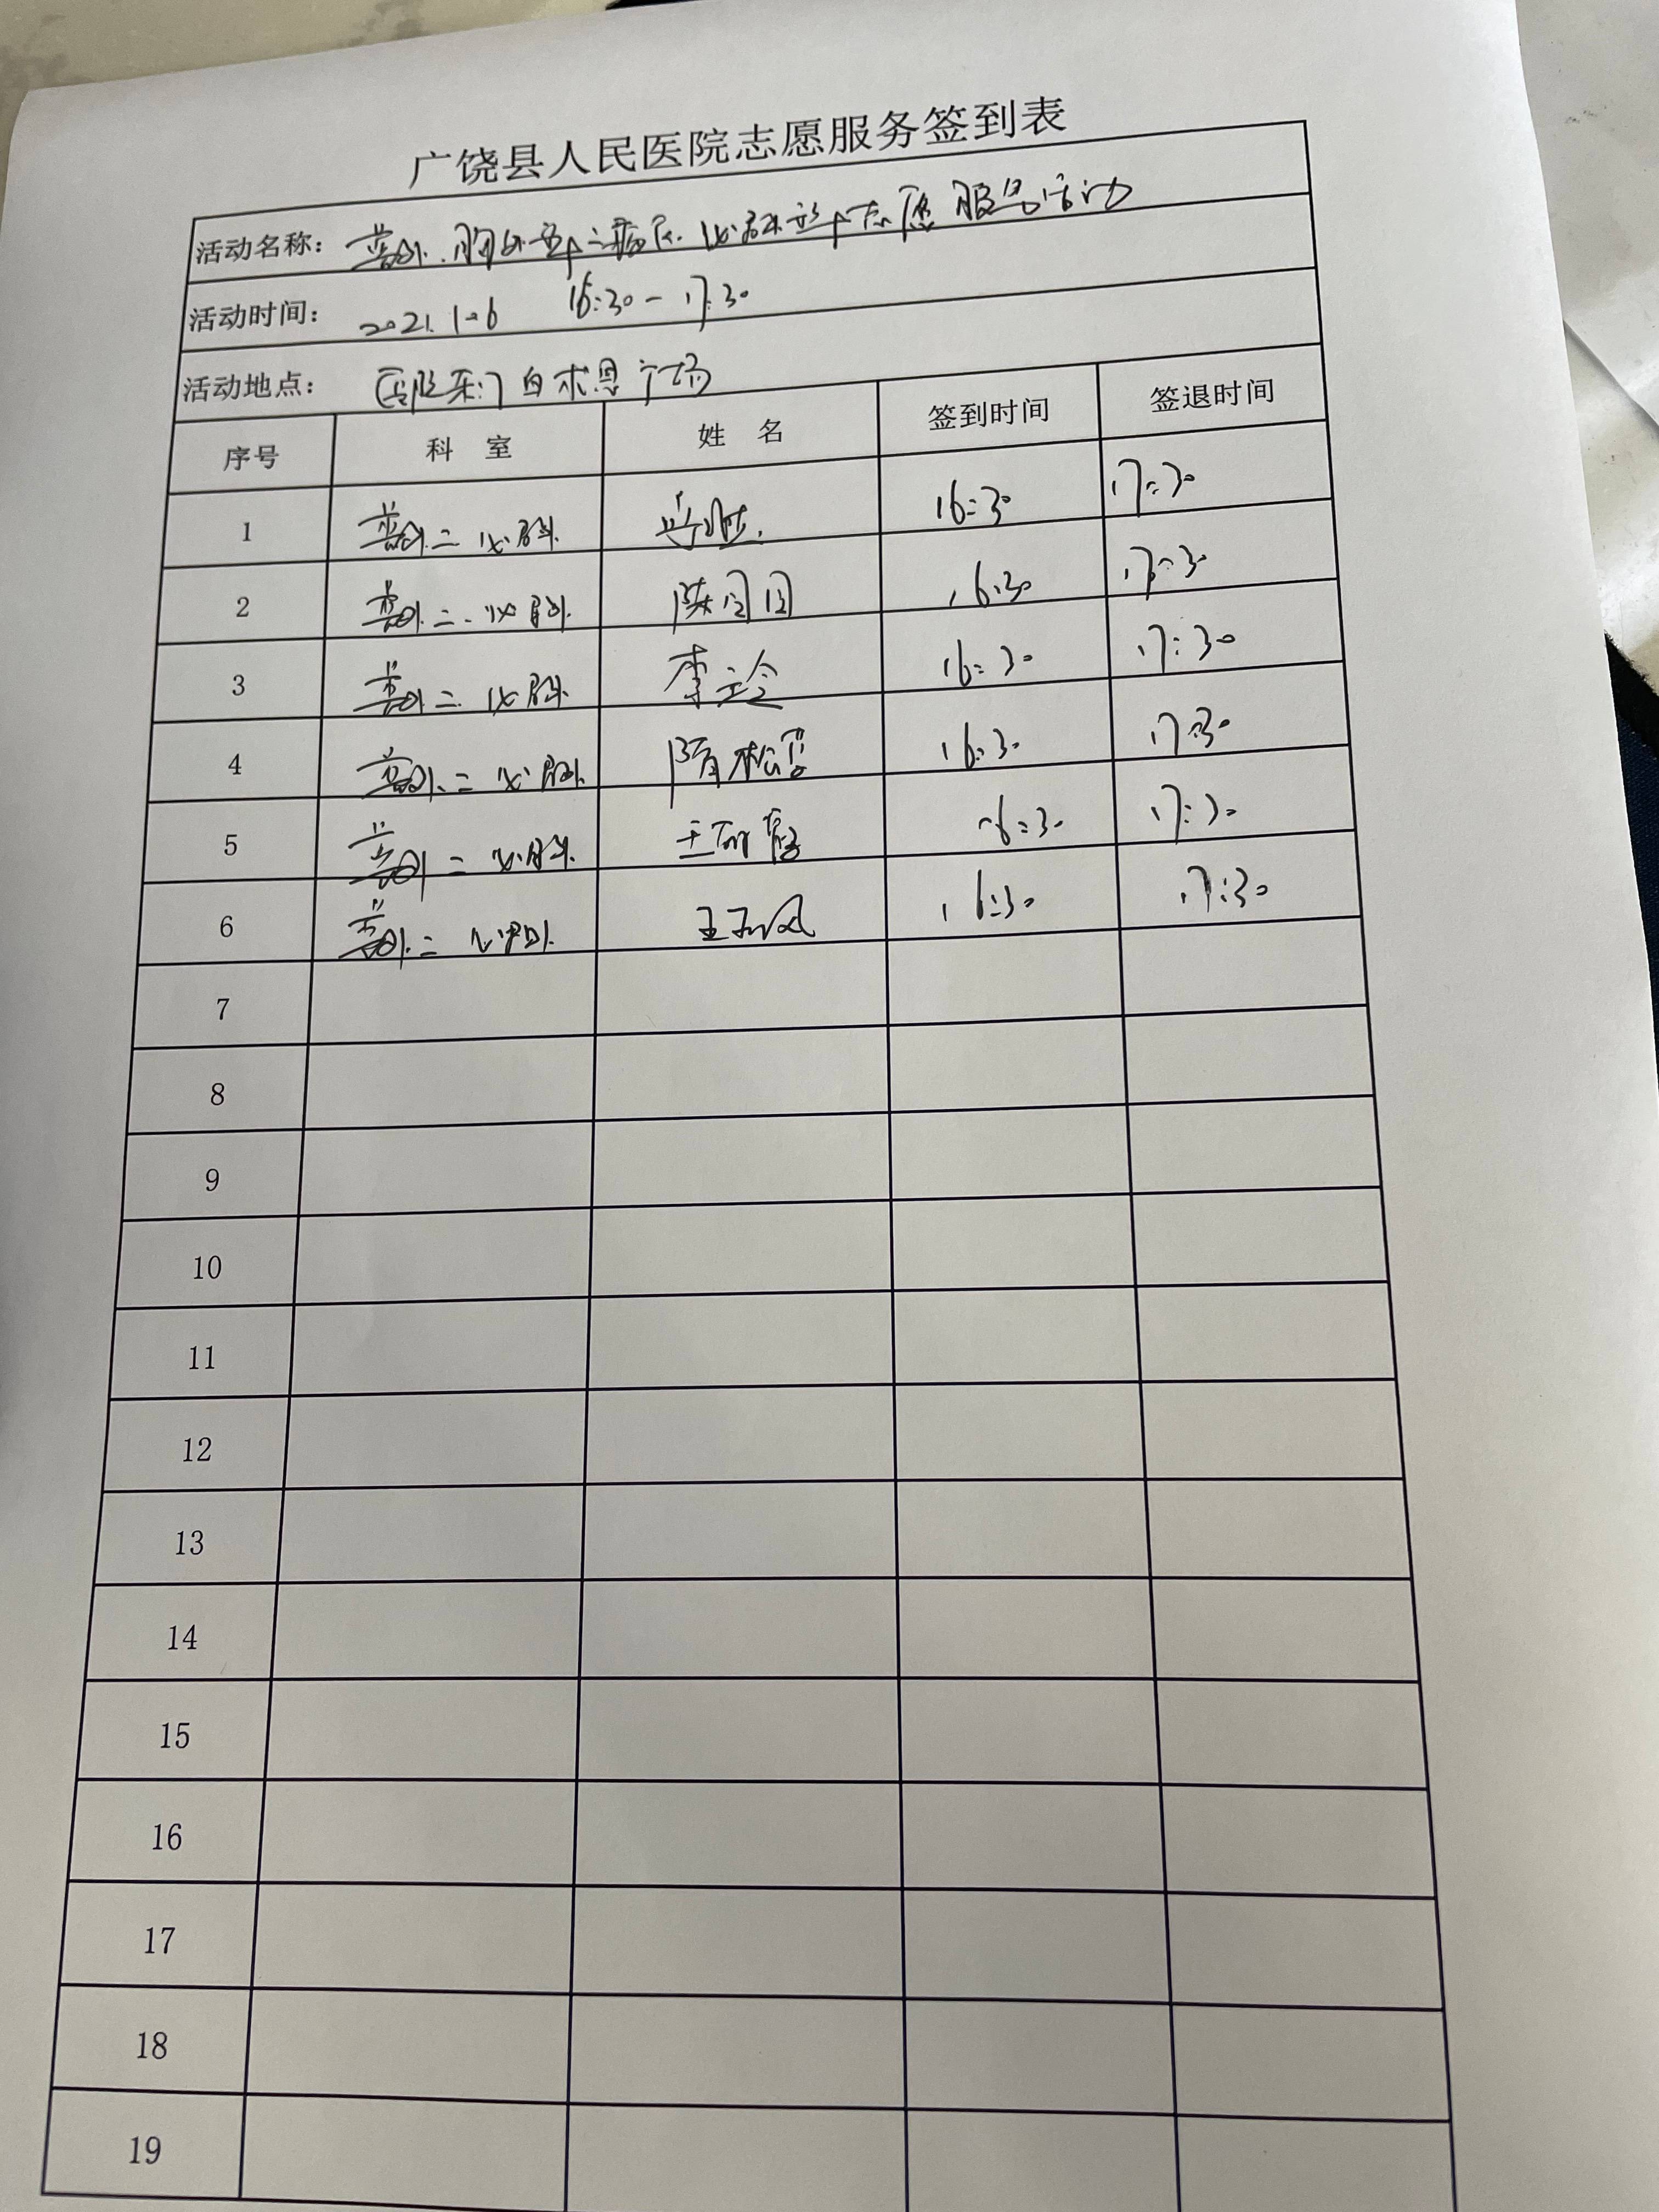 广饶县人民医院志愿服务签到表
活动名称：普外 胸外 二病区 心脉 志愿服务活动
活动时间：2021.1.6 16:30-17:30
活动地点：医院东门白求恩广场
序号 科室 姓名 签到时间 签退时间
1 普外二 心胸外 16:30 17:30
2 普外二 心胸外 陈团团 16:30 17:30
3 普外二 心胸外 李玲 16:30 17:30
4 普外二 心胸外 隋松 16:30 17:30
5 普外二 心胸外 王 16:30 17:30
6 普外二 心胸外 王 凤 16:30 17:30
7
8
9
10
11
12
13
14
15
16
17
18
19